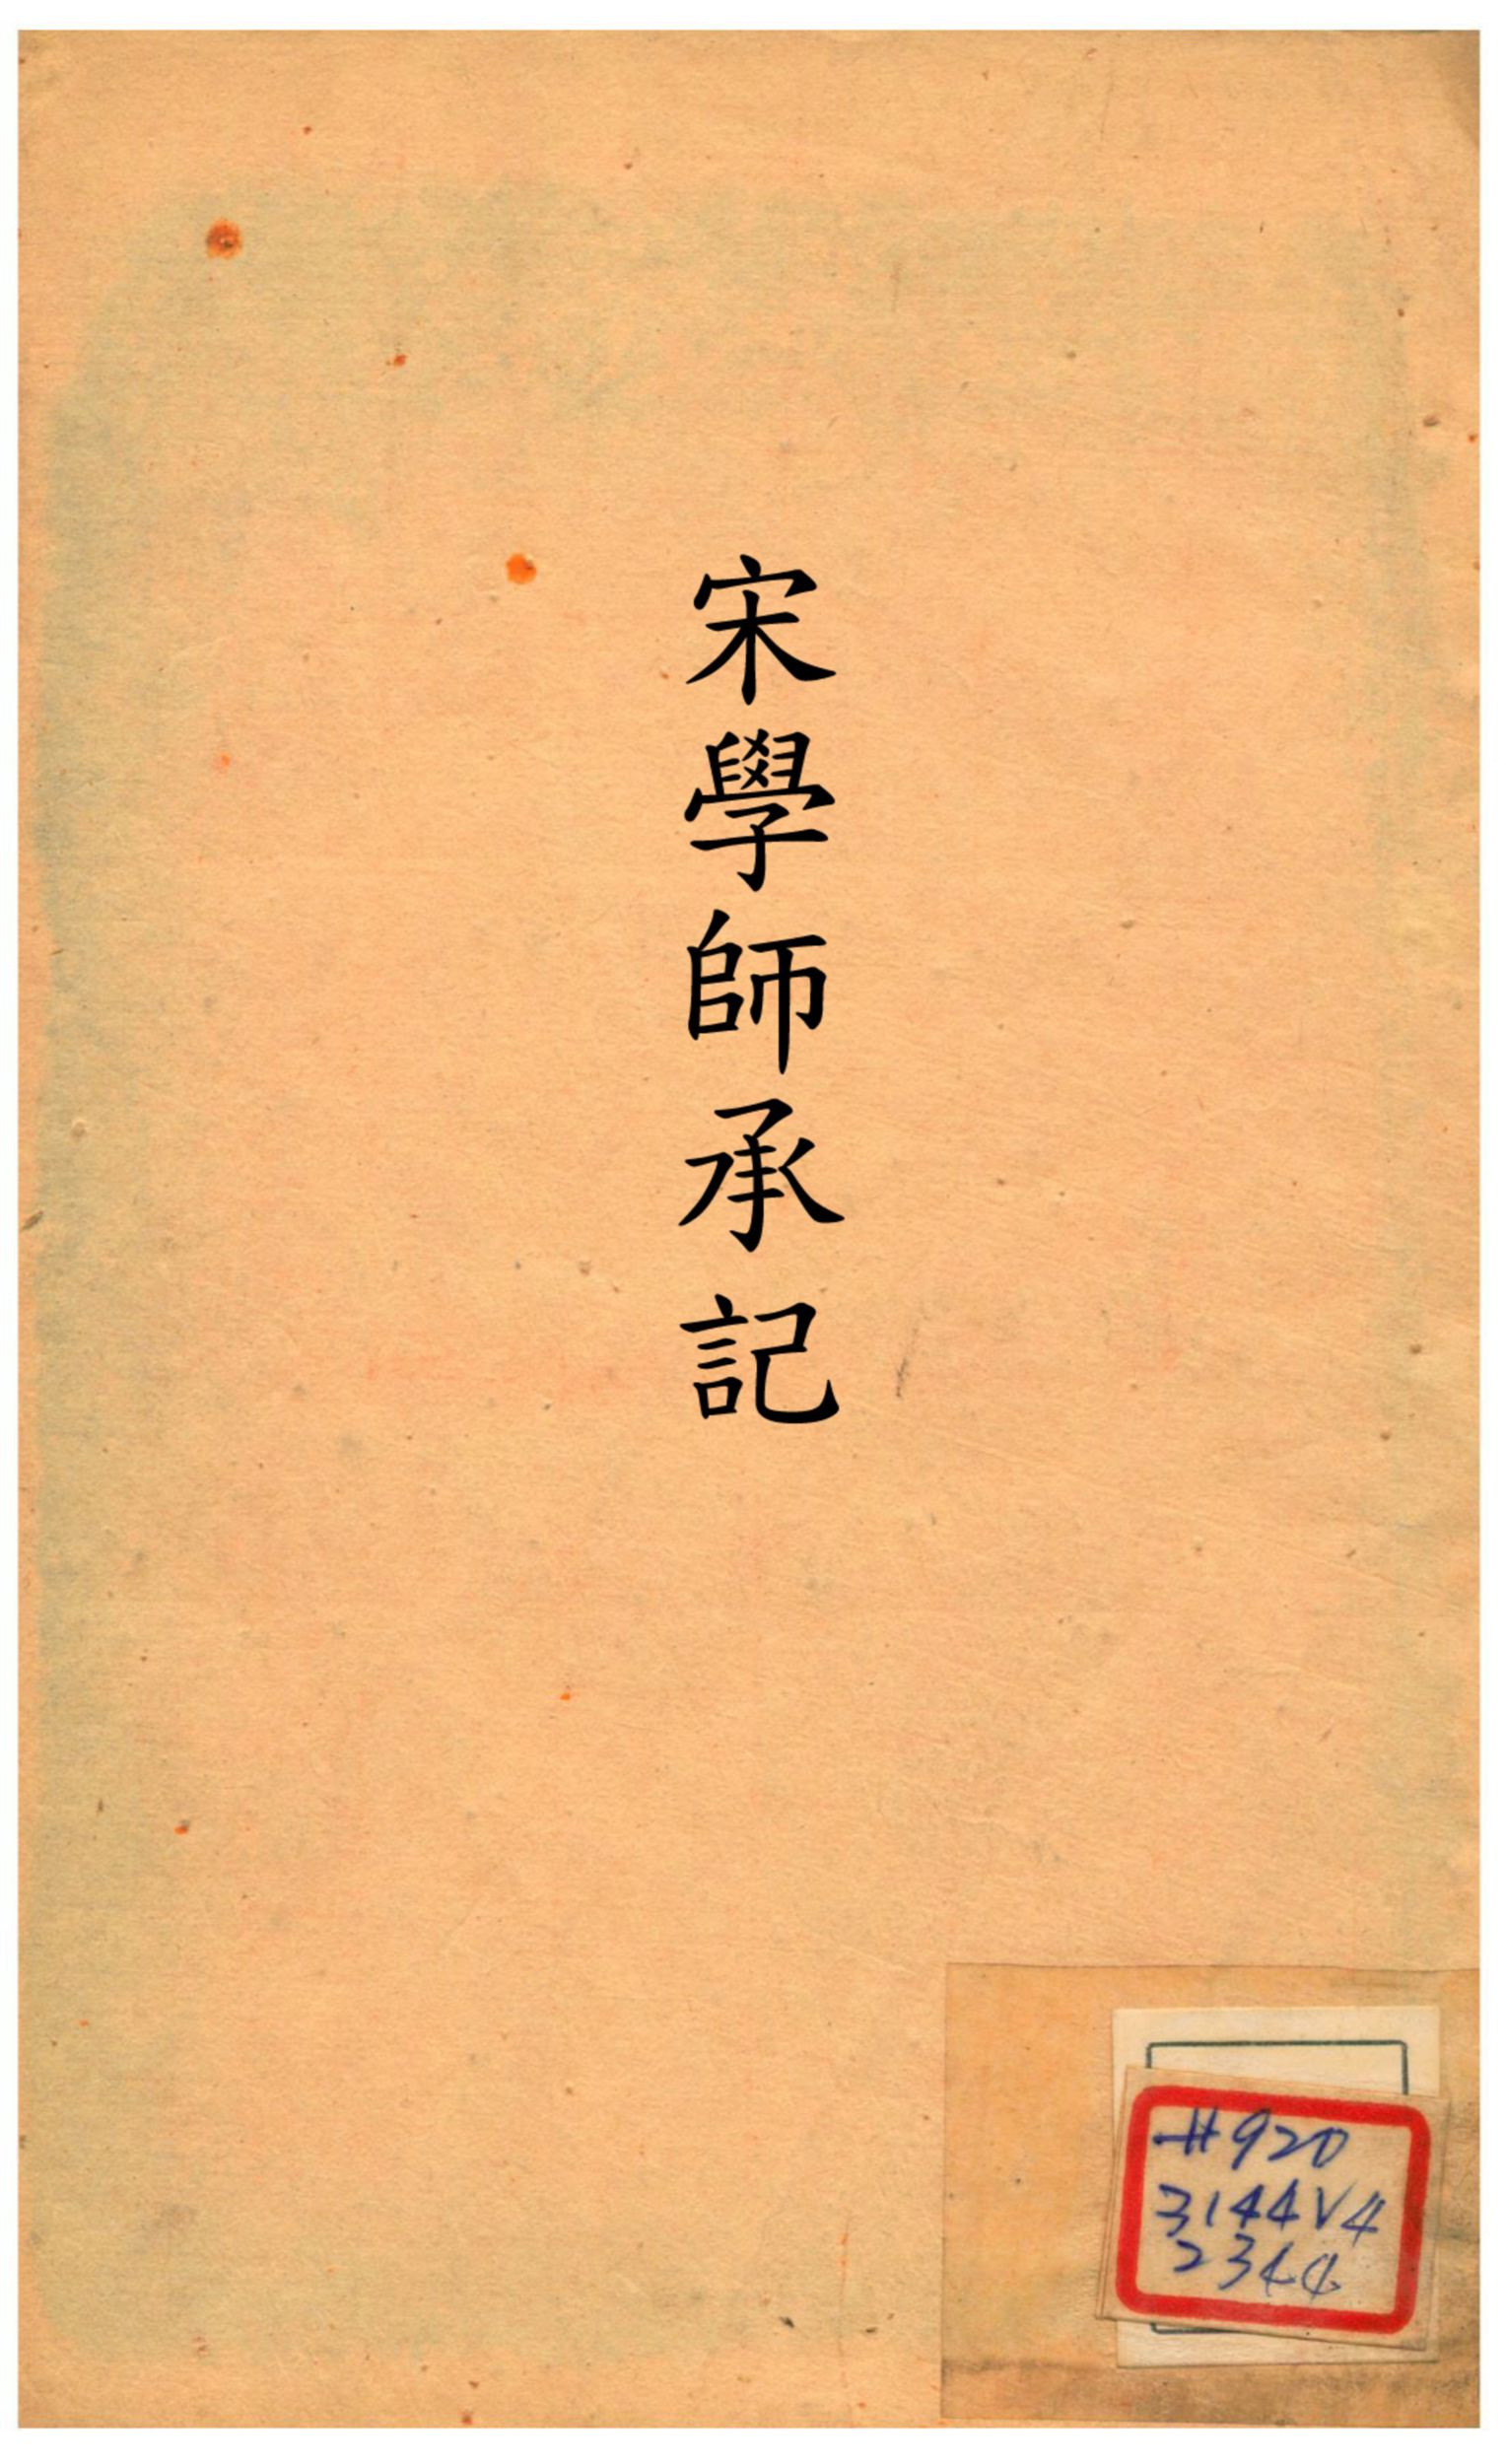 宋學師承記
920
3144V4
2344